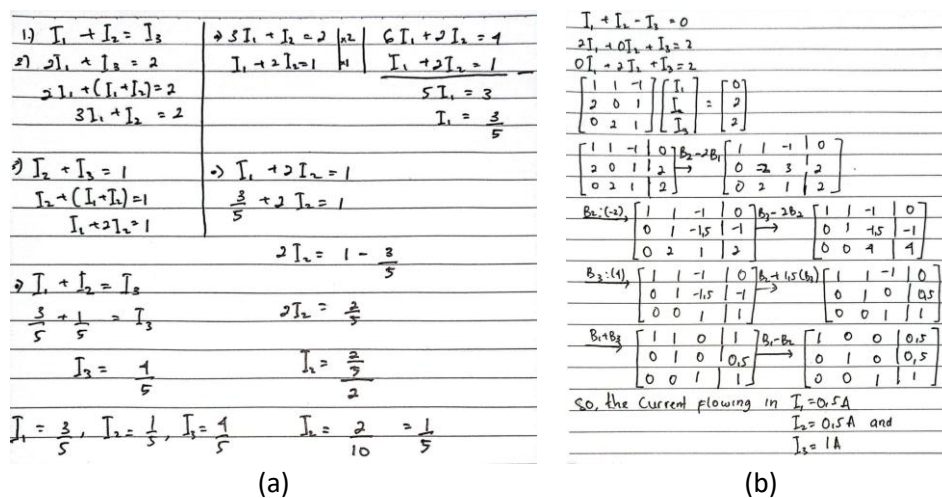 1.) I₁ + I₂ = I₃
2) 2I₁ + I₃ = 2
2I₁ + (I₁+I₂) = 2
3I₁ + I₂ = 2
I₂ + I₃ = 1
I₂ + (I₁+I₂) = 1
I₁ + 2I₂ = 1
I₁ + I₂ = I₃
3/5 + 1/5 = I₃
I₃ = 4/5
3I₁ + I₂ = 2 | x2 | 6I₁ + 2I₂ = 4
I₁ + 2I₂ = 1 | x1 | I₁ + 2I₂ = 1 –
5I₁ = 3
I₁ = 3/5
I₁ + 2I₂ = 1
3/5 + 2I₂ = 1
2I₂ = 1 - 3/5
2I₂ = 2/5
I₂ = 2/5 / 2
I₂ = 2/10 = 1/5
I₁ = 3/5, I₂ = 1/5, I₃ = 4/5
(a)
I₁ + I₂ - I₃ = 0
2I₁ + 0I₂ + I₃ = 2
0I₁ + 2I₂ + I₃ = 2
[1 1 -1; 2 0 1; 0 2 1] [I₁; I₂; I₃] = [0; 2; 2]
[1 1 -1 | 0; 2 0 1 | 2; 0 2 1 | 2] B₂-2B₁ → [1 1 -1 | 0; 0 -2 3 | 2; 0 2 1 | 2]
B₂:(-2) → [1 1 -1 | 0; 0 1 -1,5 | -1; 0 2 1 | 2] B₃-2B₂ → [1 1 -1 | 0; 0 1 -1,5 | -1; 0 0 4 | 4]
B₃:(4) → [1 1 -1 | 0; 0 1 -1,5 | -1; 0 0 1 | 1] B₂+1,5(B₃) → [1 1 -1 | 0; 0 1 0 | 0,5; 0 0 1 | 1]
B₁+B₃ → [1 1 0 | 1; 0 1 0 | 0,5; 0 0 1 | 1] B₁-B₂ → [1 0 0 | 0,5; 0 1 0 | 0,5; 0 0 1 | 1]
So, the Current flowing in I₁ = 0,5 A
I₂ = 0,5 A and
I₃ = 1 A
(b)